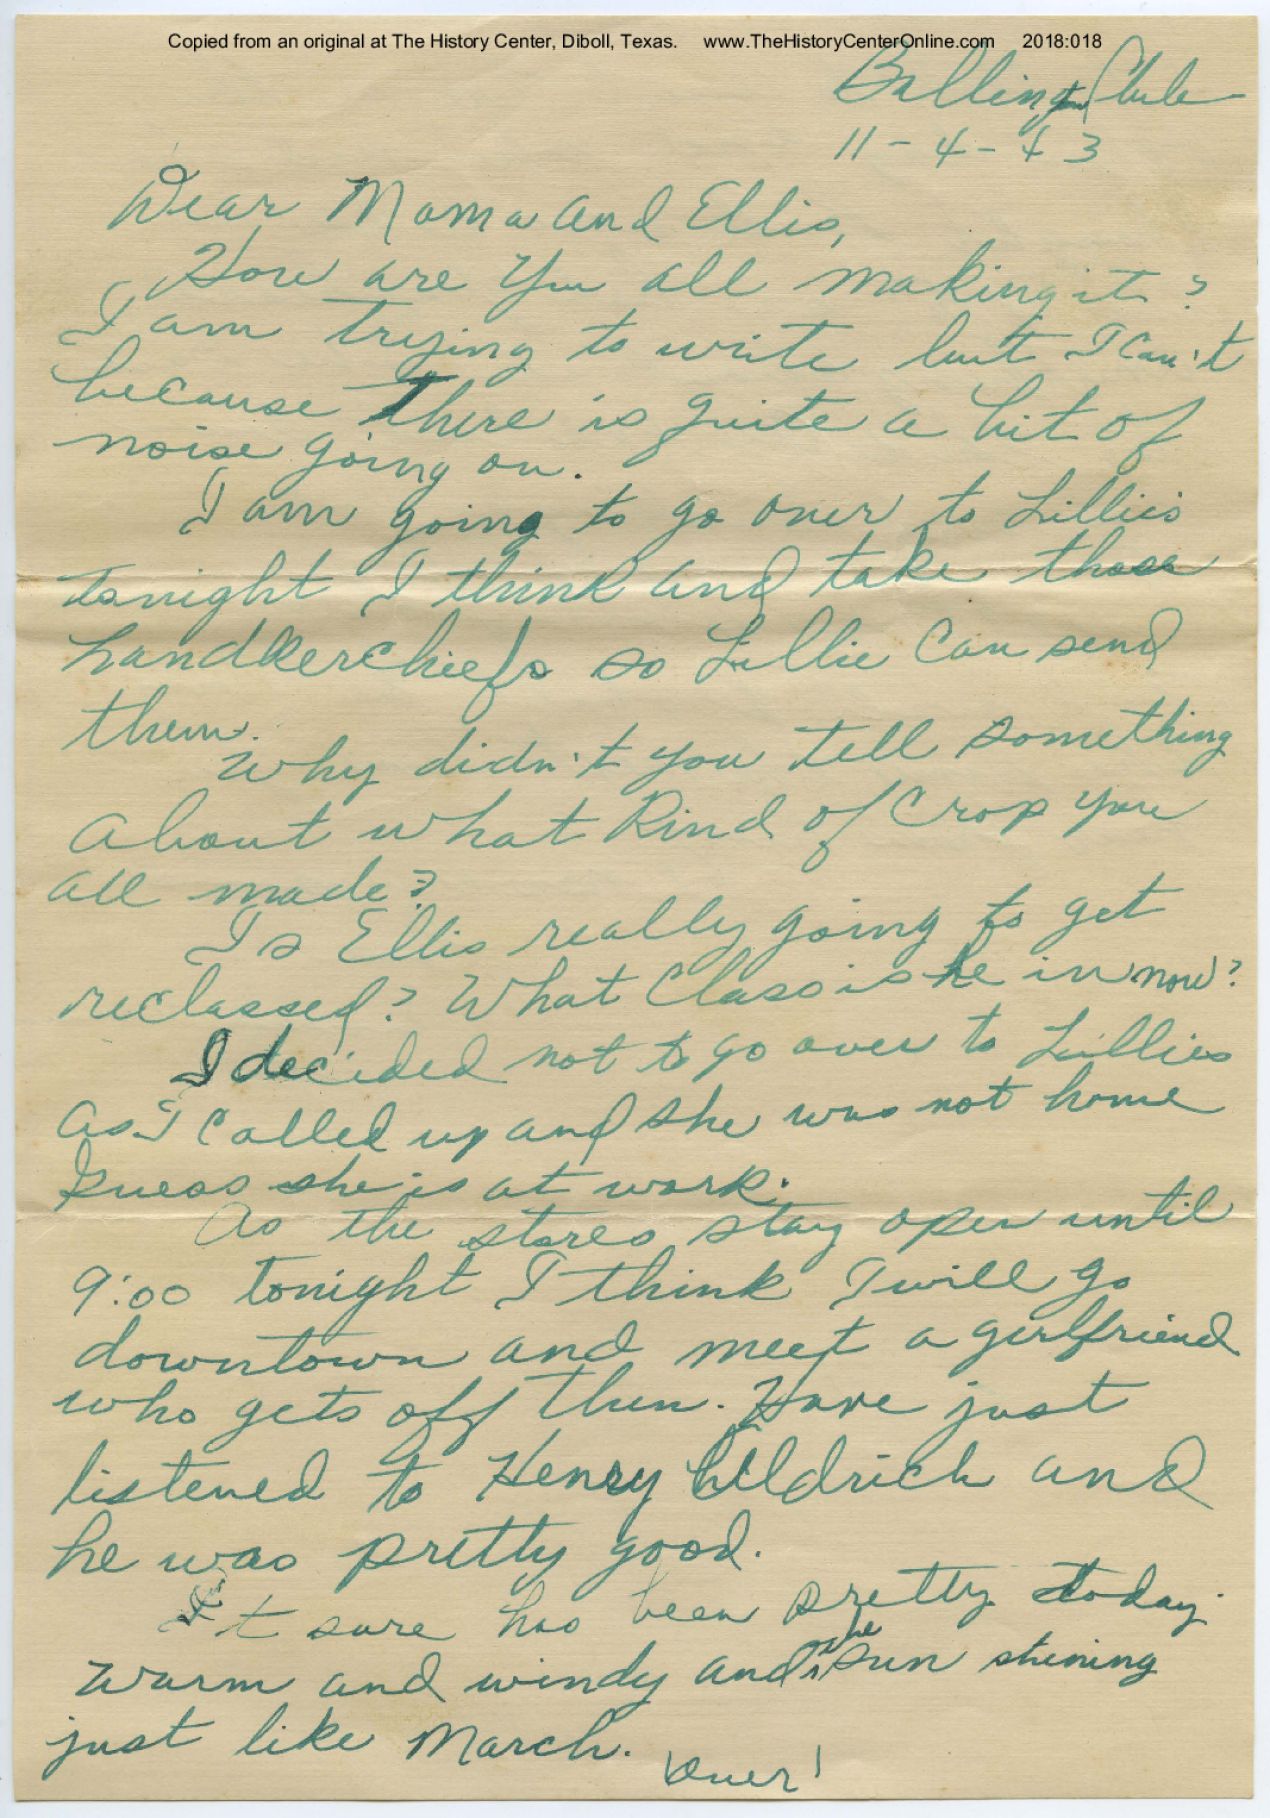 Copied from an original at The History Center, Diboll, Texas. www.TheHistoryCenterOnline.com 2018:018
Club
11-4-43
Dear Mama and Ellis,
How are you all making it?
I am trying to write but I can't
because there is quite a bit of
noise going on.
I am going to go over to Lillies
tonight I think and take those
handkerchiefs so Lillie can send
them.
Why didn't you tell something
about what kind of crop you
all made?
Is Ellis really going to get
reclassed? What class is he in now?
I decided not to go over to Lillies
as I called up and she was not home
guess she is at work.
As the stores stay open until
9:00 tonight I think I will go
downtown and meet a girlfriend
who gets off then. Have just
listened to Henry Aldrich and
he was pretty good.
It sure has been pretty today.
Warm and windy and the sun shining
just like March.
Over!